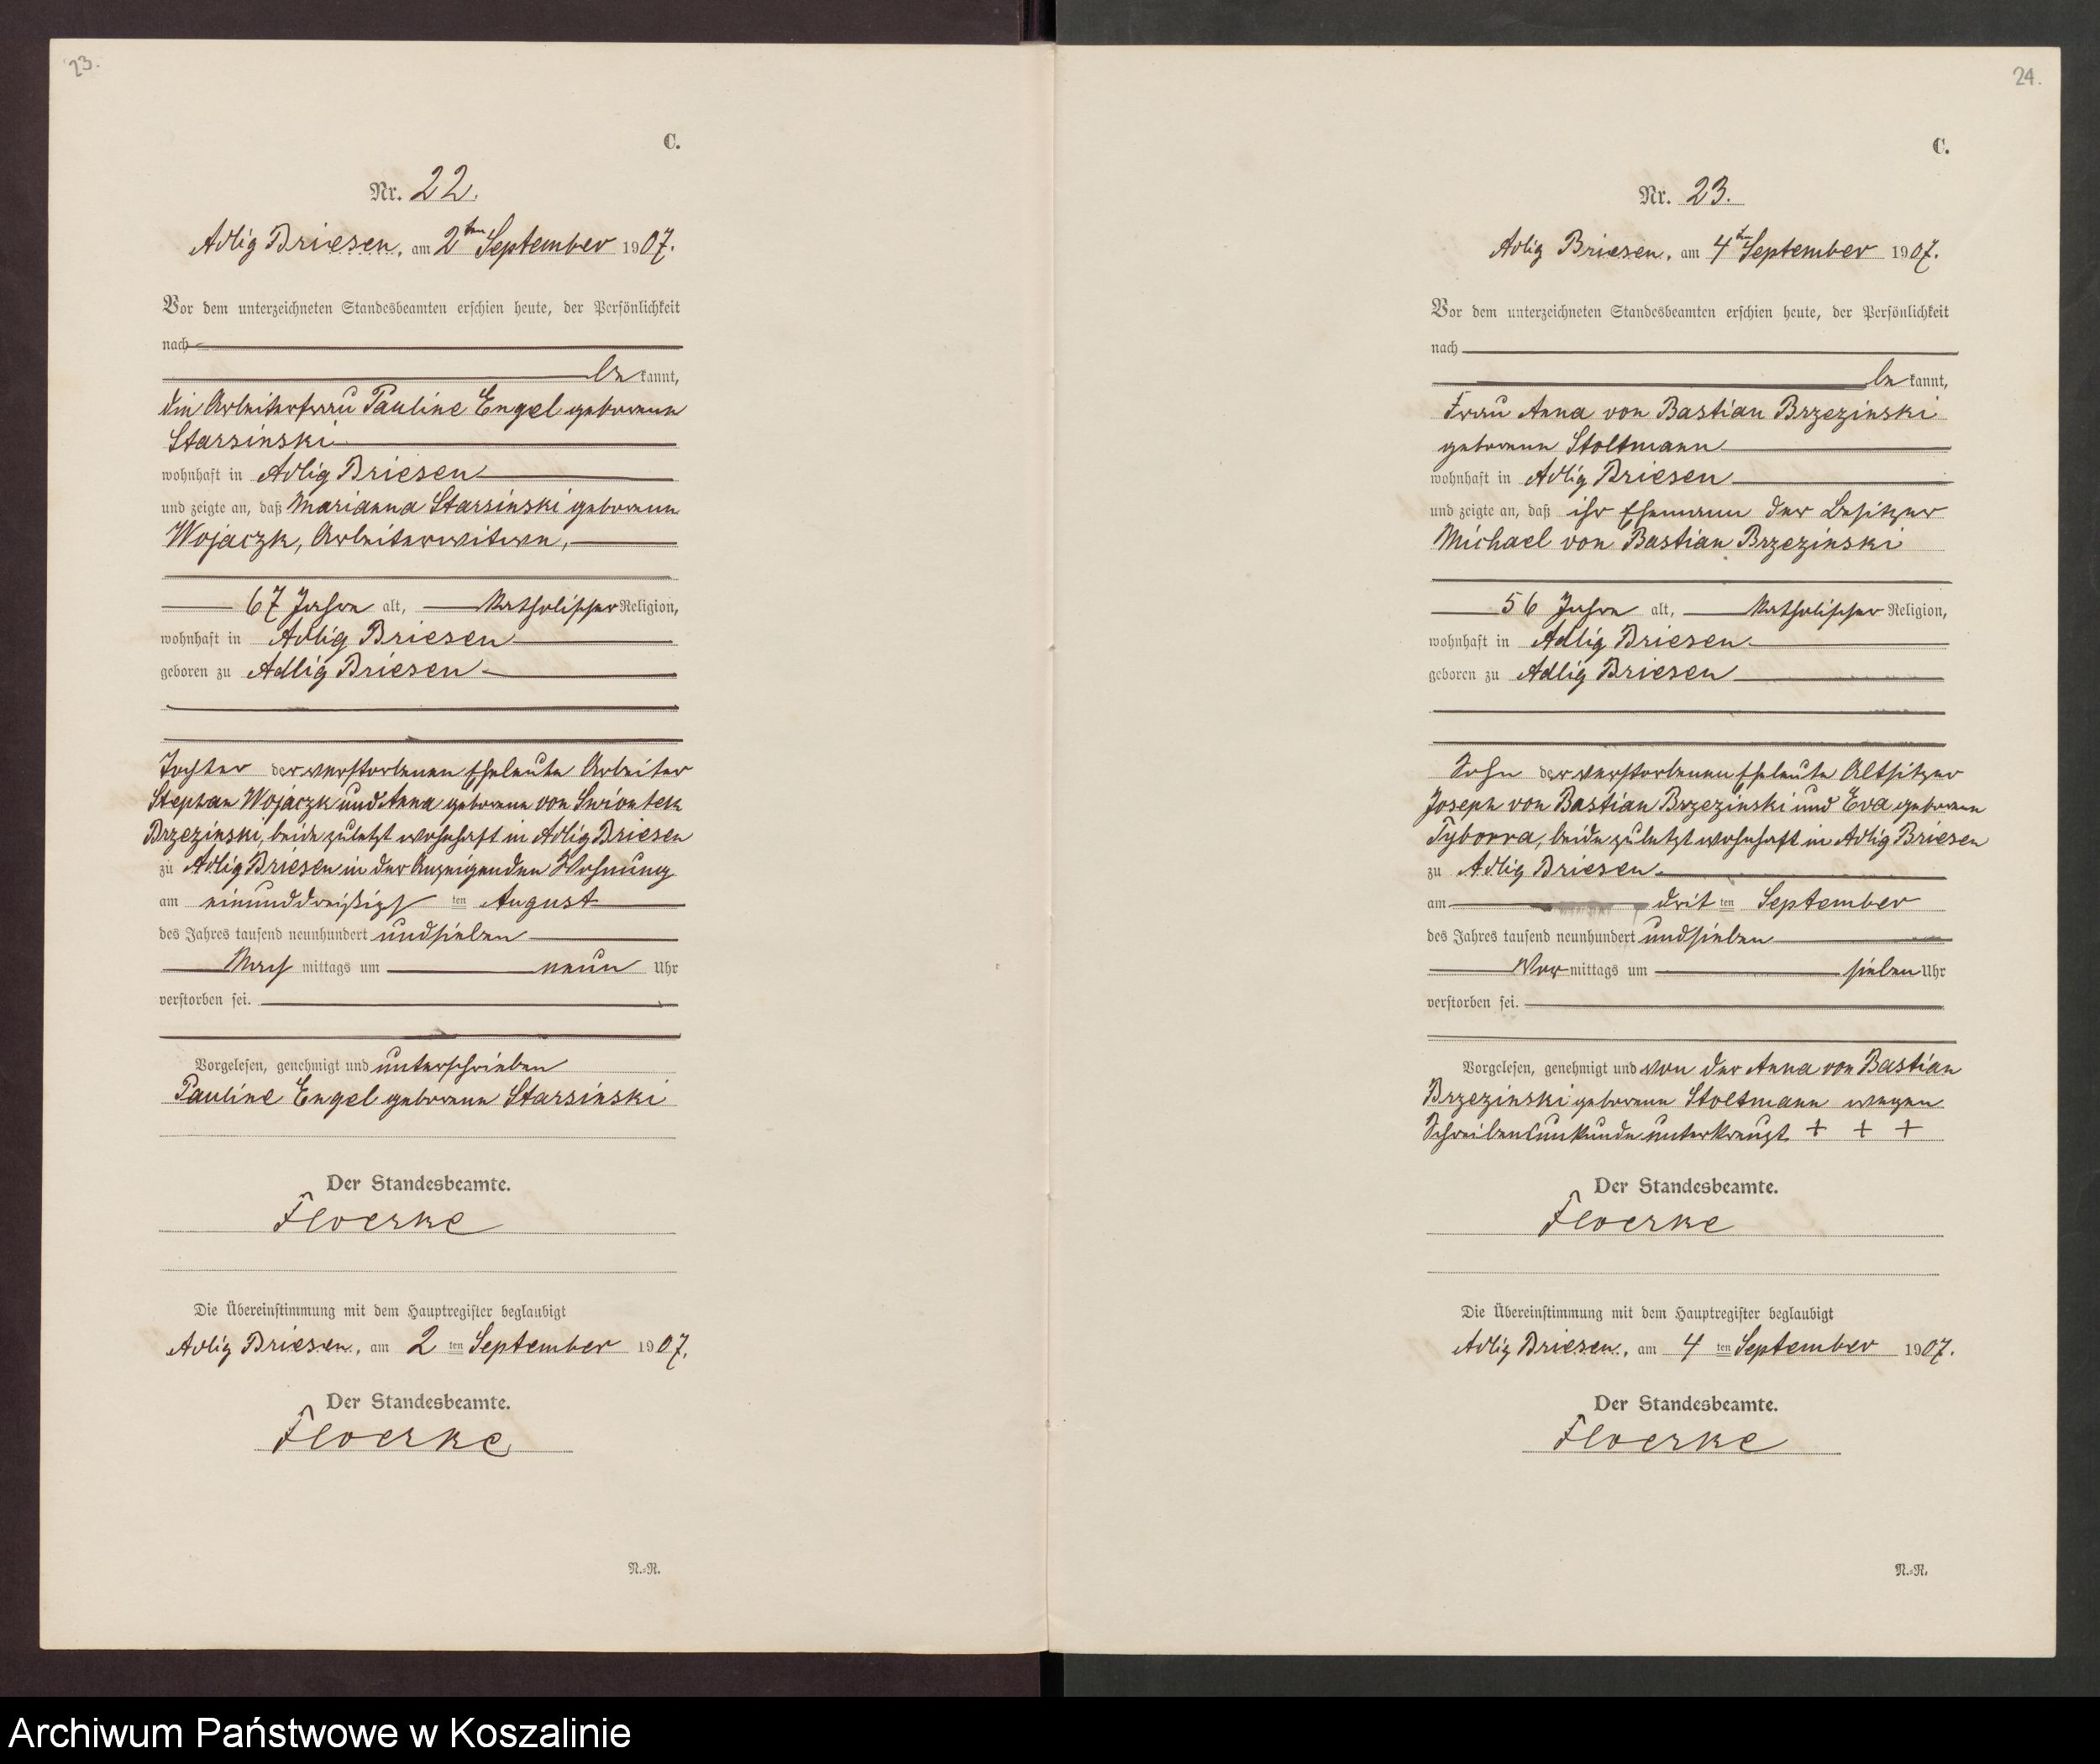 23.
C.
Nr. 22.
Adlig Briesen, am 2ten September 1907.
Vor dem unterzeichneten Standesbeamten erschien heute, der Persönlichkeit
nach
be kannt,
die Arbeiterfrau Pauline Engel geborene
Starsinski
wohnhaft in Adlig Briesen
und zeigte an, daß Marianna Starsinski geborene
Wojaczk, Arbeiterwitwe,
67 Jahre alt, katholischer Religion,
wohnhaft in Adlig Briesen
geboren zu Adlig Briesen
Tochter der verstorbenen Eheleute Arbeiter
Stephan Wojaczk und Anna geborene von Swiontek
Brzezinski, beide zuletzt wohnhaft in Adlig Briesen
zu Adlig Briesen in der Anzeigenden Wohnung
am einunddreißigst ten August
des Jahres tausend neunhundert und sieben
Nach mittags um neun Uhr
verstorben sei.
Vorgelesen, genehmigt und unterschrieben
Pauline Engel geborene Starsinski
Der Standesbeamte.
Floerke
Die Übereinstimmung mit dem Hauptregister beglaubigt
Adlig Briesen, am 2 ten September 1907.
Der Standesbeamte.
Floerke
N.=R.
24.
C.
Nr. 23.
Adlig Briesen, am 4ten September 1907.
Vor dem unterzeichneten Standesbeamten erschien heute, der Persönlichkeit
nach
be kannt,
Frau Anna von Bastian Brzezinski
geborene Stoltmann
wohnhaft in Adlig Briesen
und zeigte an, daß ihr Ehemann der Besitzer
Michael von Bastian Brzezinski
56 Jahre alt, katholischer Religion,
wohnhaft in Adlig Briesen
geboren zu Adlig Briesen
Sohn der verstorbenen Eheleute Altsitzer
Joseph von Bastian Brzezinski und Eva geborene
Tyborra, beide zuletzt wohnhaft in Adlig Briesen
zu Adlig Briesen
am drit ten September
des Jahres tausend neunhundert und sieben
Vor mittags um sieben Uhr
verstorben sei.
Vorgelesen, genehmigt und von der Anna von Bastian
Brzezinski geborene Stoltmann wegen
Schreibensunkunde unterkreuzt + + +
Der Standesbeamte.
Floerke
Die Übereinstimmung mit dem Hauptregister beglaubigt
Adlig Briesen, am 4 ten September 1907.
Der Standesbeamte.
Floerke
N.=R.
Archiwum Państwowe w Koszalinie